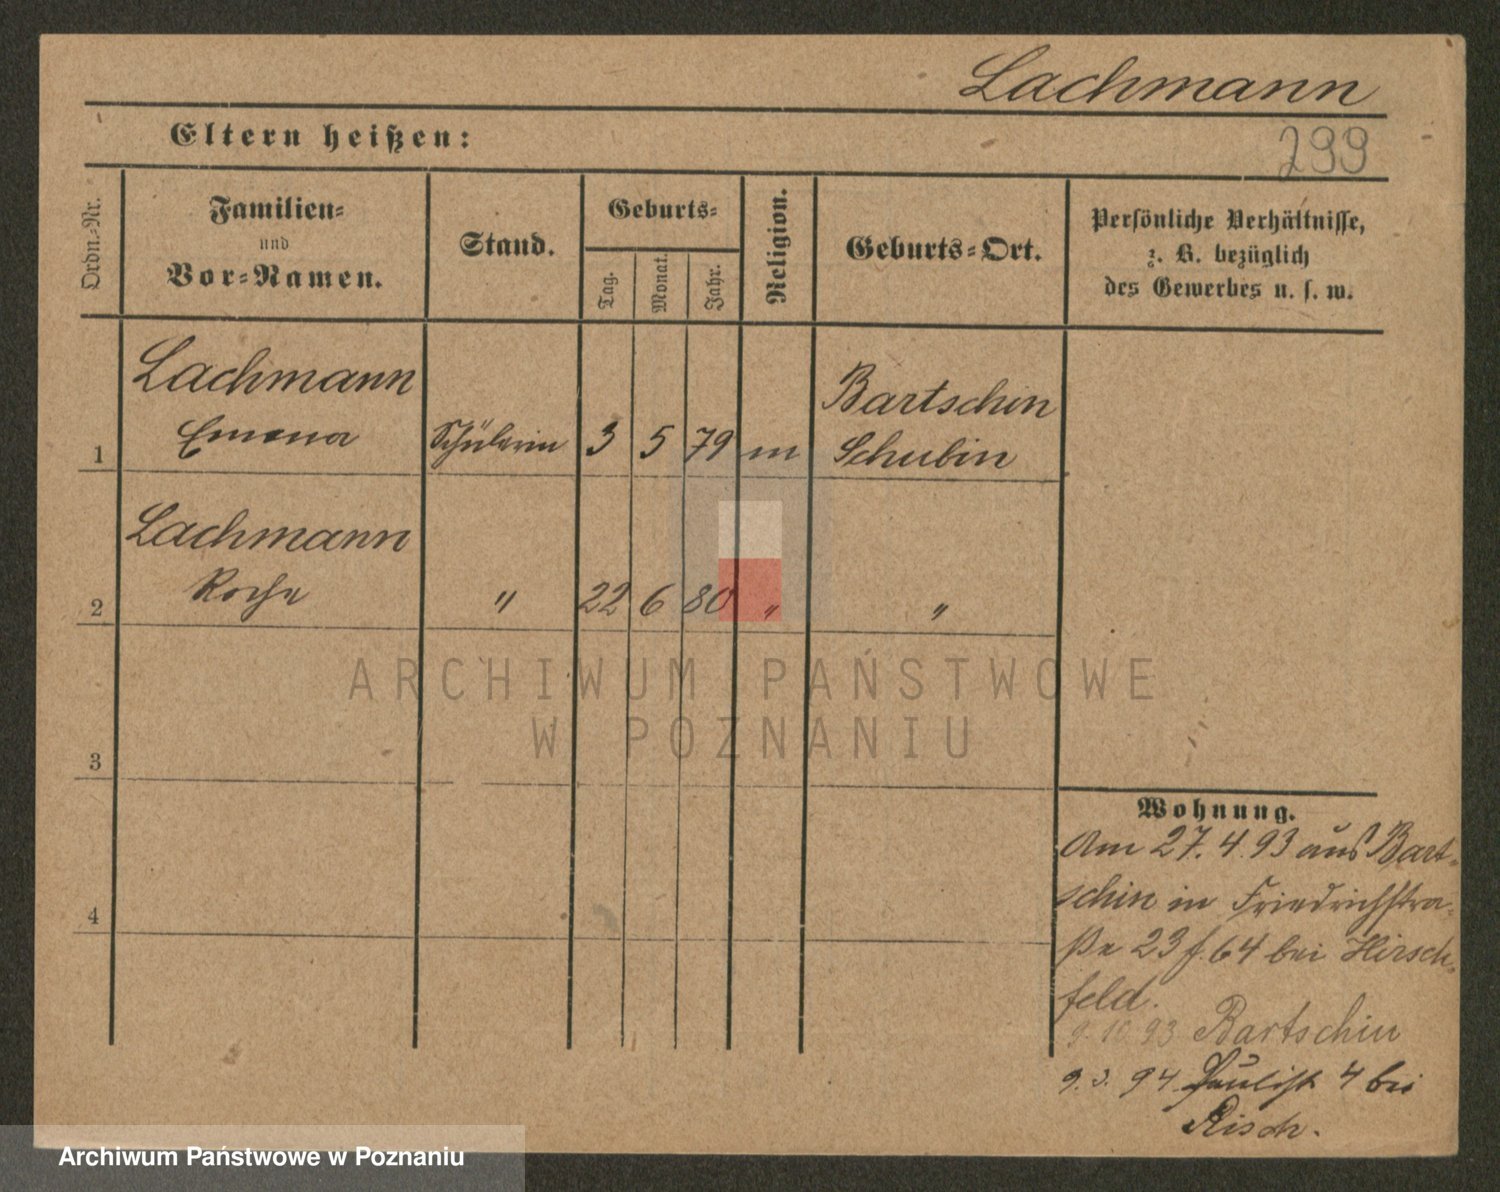 Lachmann
Eltern heißen:
299
Ordn.-Nr.
Familien-
und
Vor-Namen.
Stand.
Geburts-
Tag.
Monat.
Jahr.
Religion.
Geburts-Ort.
Persönliche Verhältnisse,
z. B. bezüglich
des Gewerbes u. s. w.
Lachmann
1 Schülerin 3 5 79 m
Bartschin
Schubin
Lachmann
2 " 22 6 80 " "
ARCHIWUM PAŃSTWOWE
W POZNANIU
3
4
Wohnung.
Am 27.4.93 aus Bart-
schin in Friedrichstra-
ße 23 f. 64 bei Hirsch-
feld.
9.10.93 Bartschin
9.3.94 Paulist. 4 bei
Risch.
Archiwum Państwowe w Poznaniu